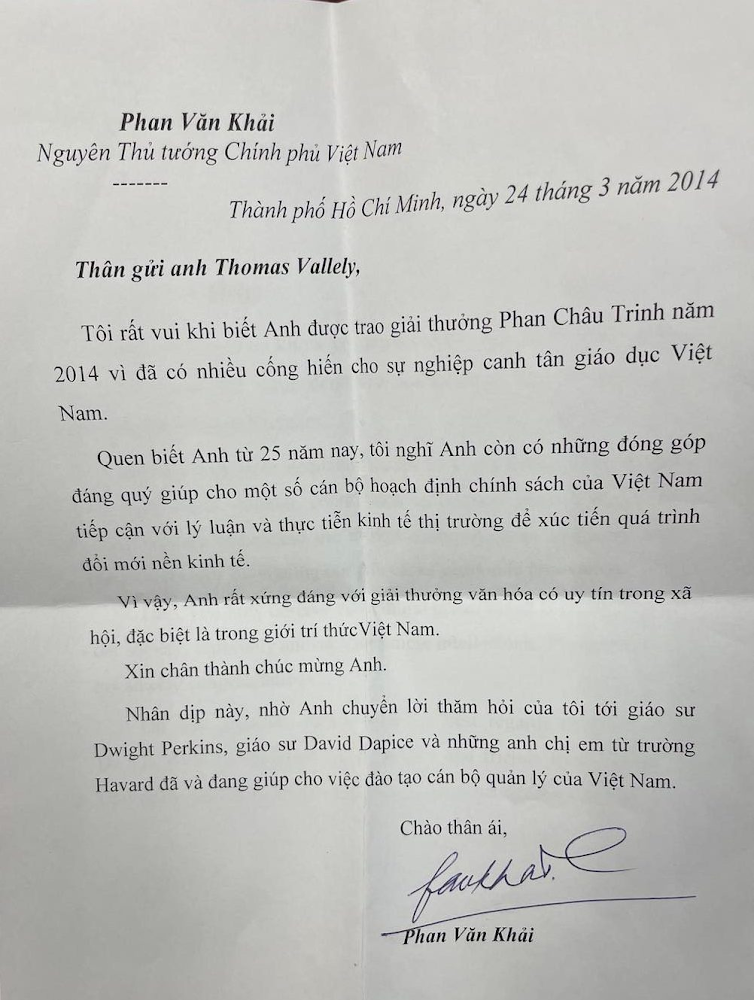 Phan Văn Khải
Nguyên Thủ tướng Chính phủ Việt Nam
-------
Thành phố Hồ Chí Minh, ngày 24 tháng 3 năm 2014
Thân gửi anh Thomas Vallely,
Tôi rất vui khi biết Anh được trao giải thưởng Phan Châu Trinh năm
2014 vì đã có nhiều cống hiến cho sự nghiệp canh tân giáo dục Việt
Nam.
Quen biết Anh từ 25 năm nay, tôi nghĩ Anh còn có những đóng góp
đáng quý giúp cho một số cán bộ hoạch định chính sách của Việt Nam
tiếp cận với lý luận và thực tiễn kinh tế thị trường để xúc tiến quá trình
đổi mới nền kinh tế.
Vì vậy, Anh rất xứng đáng với giải thưởng văn hóa có uy tín trong xã
hội, đặc biệt là trong giới trí thứcViệt Nam.
Xin chân thành chúc mừng Anh.
Nhân dịp này, nhờ Anh chuyển lời thăm hỏi của tôi tới giáo sư
Dwight Perkins, giáo sư David Dapice và những anh chị em từ trường
Havard đã và đang giúp cho việc đào tạo cán bộ quản lý của Việt Nam.
Chào thân ái,
Phan Văn Khải